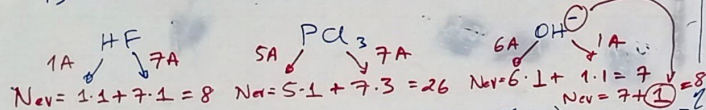 HF
1A 7A
Nev= 1·1+7·1 = 8
PCl3
5A 7A
Nev= 5·1 + 7·3 = 26
OH⊖
6A 1A
Nev= 6·1+ 1·1= 7
Nev= 7+1=8